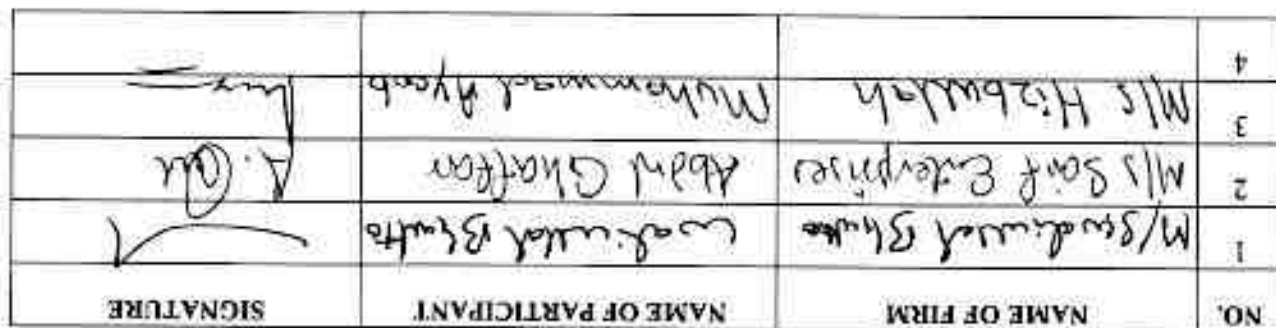 NO. NAME OF FIRM NAME OF PARTICIPANT SIGNATURE
1 M/S Walidad Bhutto Walidad Bhutto
2 M/S Saif Enterprises Abdul Ghaffar
3 M/S Hizbullah Muhammad Ayoub
4